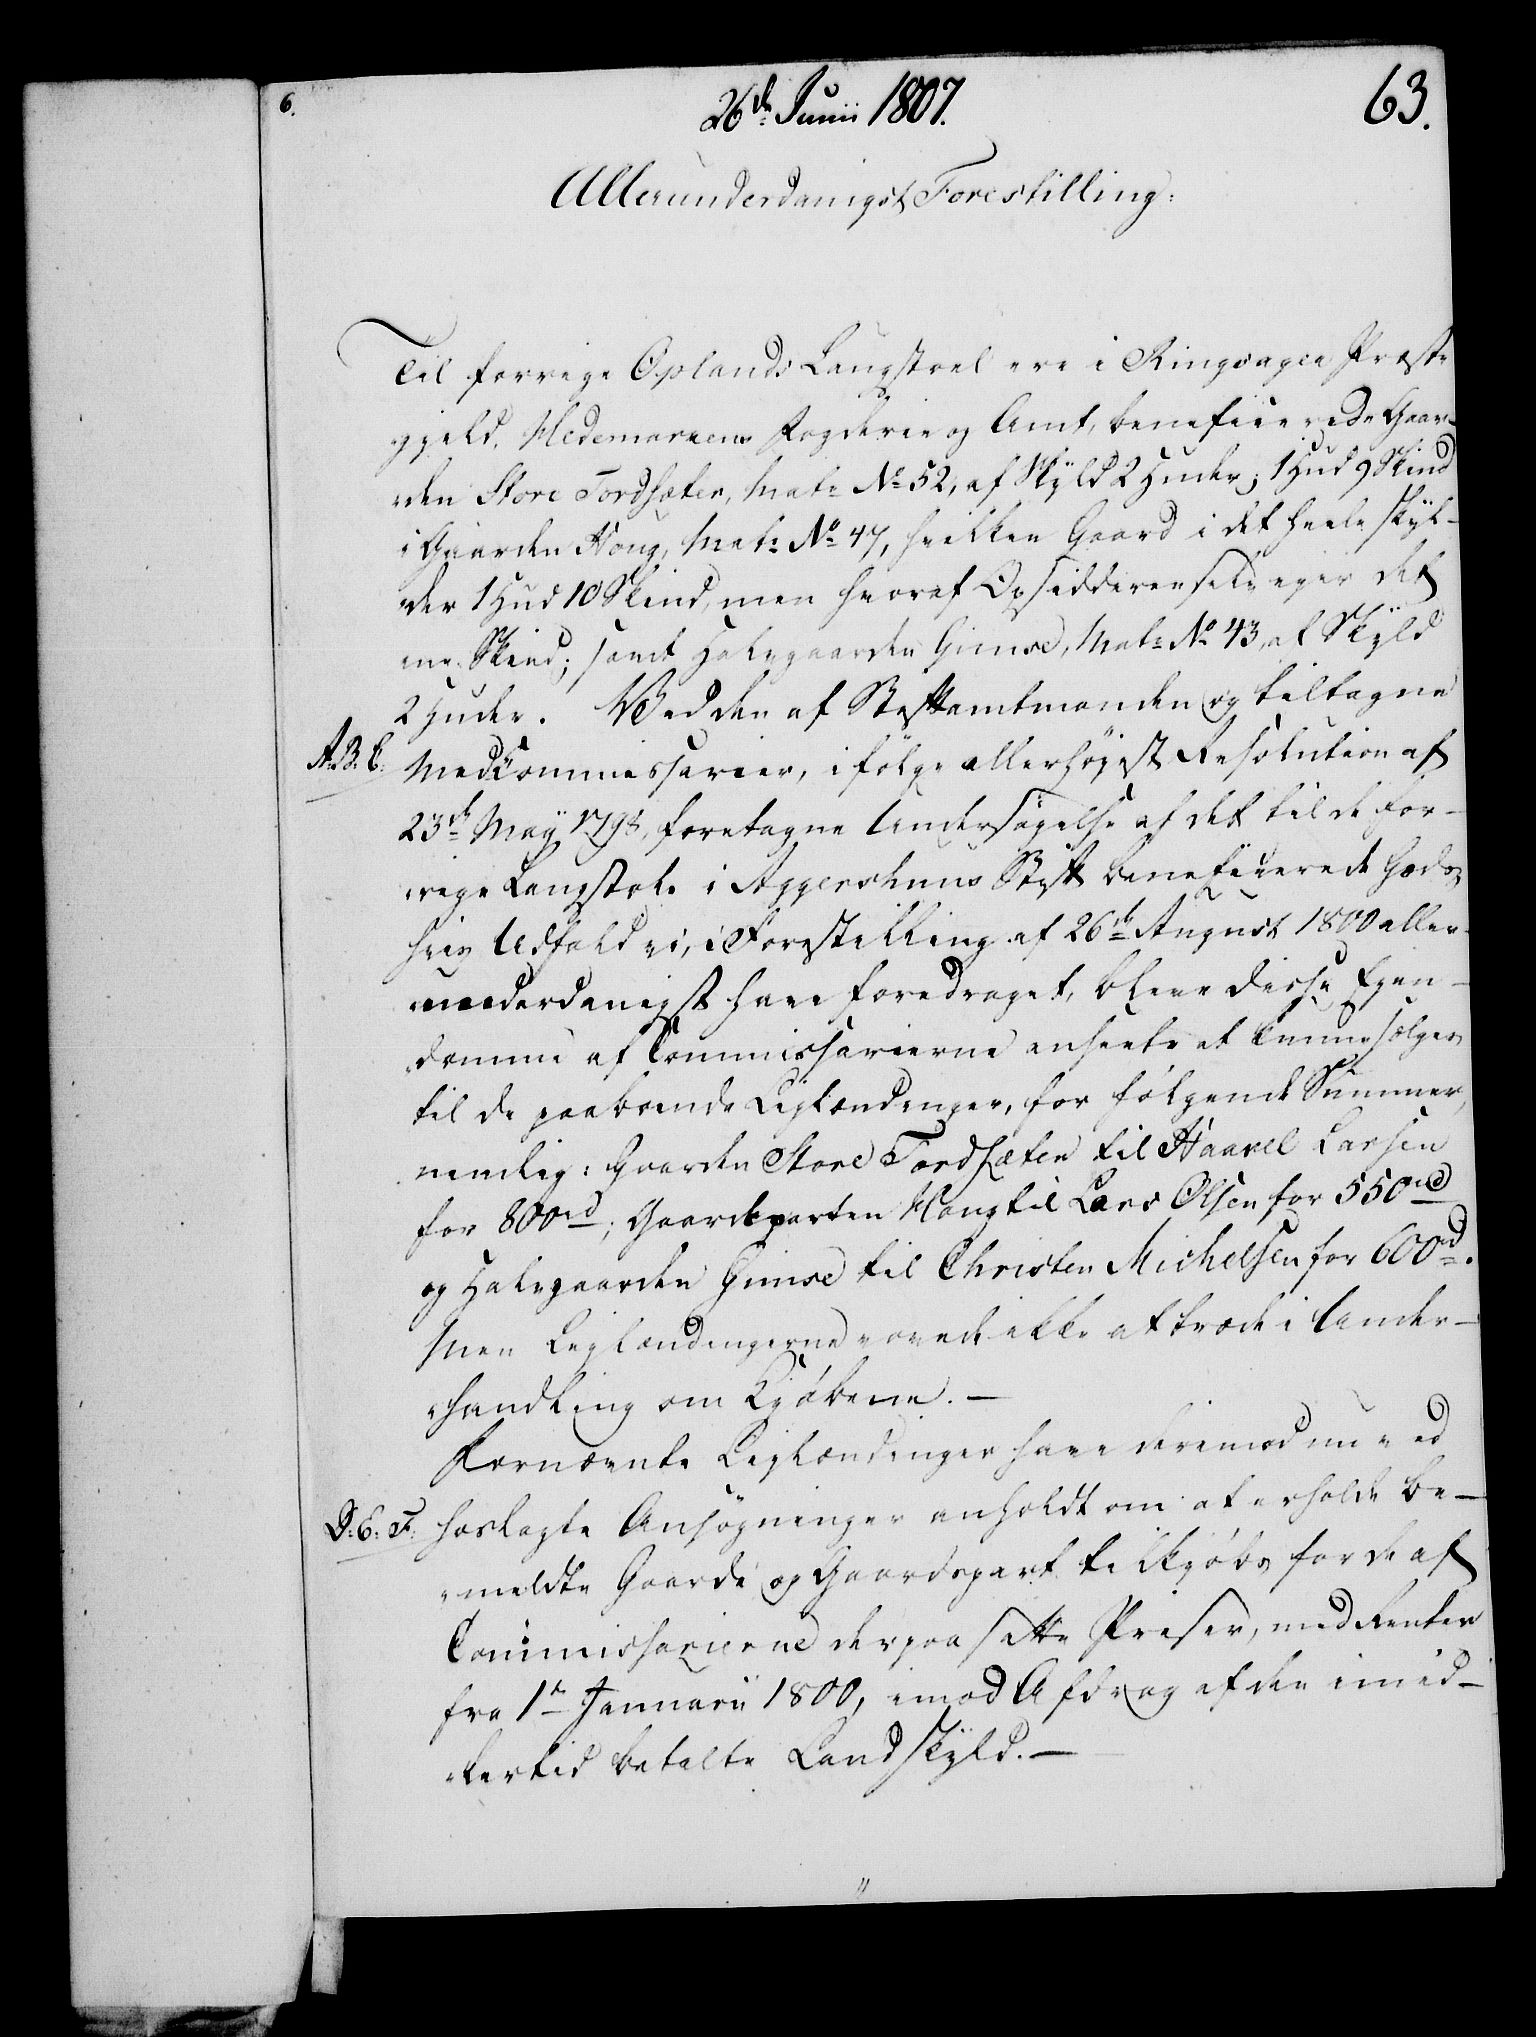 6.
26de Junii 1807.
63.
Allerunderdanigst Forestilling:
Til forrige Oplands Laugstoel ere i Ringsager Præste-
gjeld, Hedemarkens Fogderie og Amt, beneficerede Gaar-
den Store Tordsæter, Matr: No 52, af Skyld 2 Huder; 1 Hud 9 Skind
i Gaarden Houg, Matr: No 47, hvilken Gaard i det heele skyl-
der 1 Hud 10 Skind, men hvoraf Opsidderen selv eger det
ene Skind; samt Halvgaarden Gimse, Matr: No 43, af Skyld
2 Huder. Ved den af Stiftamtmanden og tiltagne
A. B. C.
Medkommissarier, ifølge allerhøjest Resolution af
23de Maÿ 1798, foretagne Undersøgelse af det til de for-
rige Laugstole i Aggershuus Stift beneficerede Gods,
hvis Udfald vi, i Forestilling af 26de August 1800 aller-
underdanigst have foredraget, bleve disse Egen-
domme af Commissarierne ansete at kunne sælges
til de paaboende Leglændinger, for følgende Summer,
nemlig: Gaarden Store Tordsæter til Haavel Larsen
for 800rd; Gaardeparten Houg til Lars Olsen for 550rd
og Halvgaarden Gimse til Christen Michelsen for 600rd.
Men Leglændingerne vovede ikke at træde i Under-
handling om Kjøbene. —
Fornævnte Leglændinger have derimod nu ved
D: E: F:
hoslagte Ansøgninger anholdt om at erholde be-
meldte Gaarde og Gaardspart tilkjøbs for de af
Commissarierne derpaa satte Priser, med Renter
fra 1te Januarii 1800, imod Afdrag af den imid-
lertid betalte Landskyld. —
"